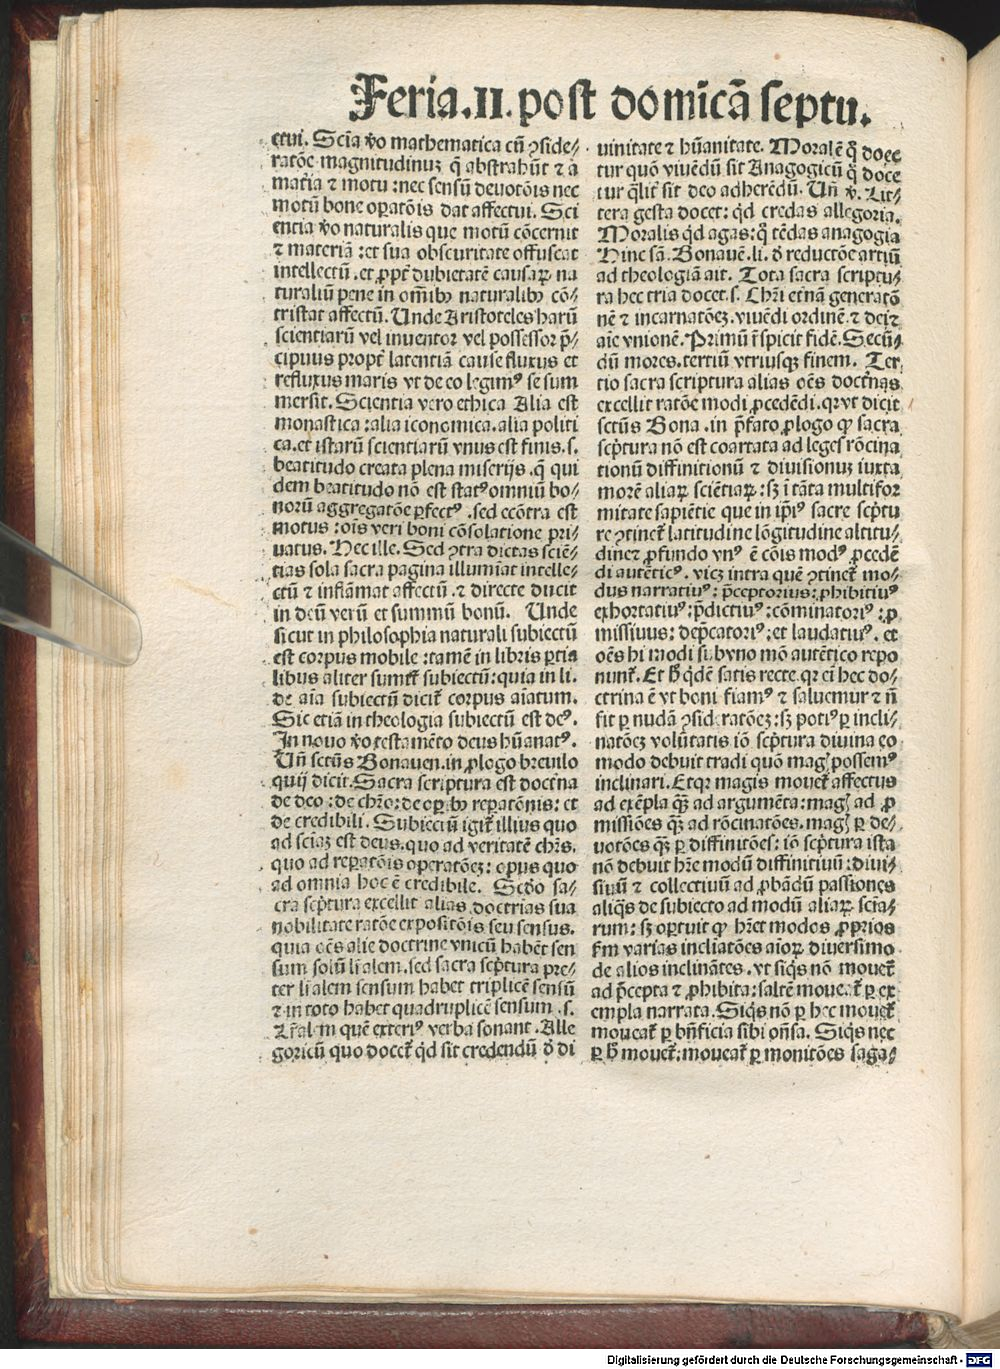 Feria.II.post domĩcã septu.
ctui. Scĩa ꝟo mathematica cũ ꝯside⸗
ratõe magnitudinuꝫ q̃ abstrahũt ⁊ a
mat̃ia ⁊ motu : nec sensũ deuotõis nec
motũ bone oꝑatõis dat affectui. Sci
entia ꝟo naturalis que motũ cõcernit
⁊ materiã : et sua obscuritate offuscat
intellectũ . et ꝓpt̃ dubietatẽ causaꝝ na
turaliũ pene in om̃ibꝫ naturalibꝫ cõ⸗
tristat affectũ. Unde Aristoteles harũ
scientiarũ vel inuentor vel possessor p̃⸗
cipuus propt̃ latentiã cause fluxus et
refluxus maris vt de eo legimꝰ se sum
mersit. Scientia vero ethica Alia est
monastica : alia iconomica. alia politi
ca. et istarũ scientiarũ vnus est finis. s.
beatitudo creata plena miserijs . q̃ qui
dem beatitudo nõ est statꝰ omniũ bo⸗
norũ aggregatõe ꝑfectꝰ . sed ecõtra est
motus : oĩs veri boni cõsolatione pri⸗
uatus. Hec ille. Sed ꝯtra dictas sciẽ⸗
tias sola sacra pagina illumĩat intelle⸗
ctũ ⁊ inflãmat affectũ. ⁊ directe ducit
in deũ verũ et summũ bonũ. Unde
sicut in philosophia naturali subiectũ
est corpus mobile : tamẽ in libris ꝑtia
libus aliter sumit̃ subiectũ : quia in li.
de aĩa subiectũ dicit̃ corpus aĩatum.
Sic etiã in theologia subiectũ est deꝰ.
In nouo ꝟo testamẽto deus hũanatꝰ.
Uñ sctũs Bonauen. in ꝓlogo breuilo
quij dicit. Sacra scriptura est doct̃na
de deo : de chr̃o : de oꝑibꝫ reꝑatõnis : et
de credibili. Subiectũ igit̃ illius quo
ad sciaꝫ est deus. quo ad veritatẽ chr̃s.
quo ad reꝑatõis operatõeꝫ : opus quo
ad omnia hoc ẽ credibile. Scd̃o sa⸗
cra scp̃tura excellit alias doctrias sua
nobilitate ratõe expositõis seu sensus.
quia oẽs alie doctrine vnicũ habẽt sen
sum solũ lr̃alem. sed sacra scp̃tura pre⸗
ter lr̃alem sensum habet triplicẽ sensũ
⁊ in toto habet quadruplicẽ sensum . s.
Lr̃alem quẽ exteriꝰ verba sonant . Alle
goricũ quo docet̃ qd̃ sit credendũ ð di
uinitate ⁊ hũanitate. Moralẽ q̊ doce
tur quõ viuẽdũ sit Anagogicũ q̊ doce
tur qlit̃ sit deo adherẽdũ. Uñ ꝟ. Lit⸗
tera gesta docet : qd̃ credas allegoria.
Moralis qd̃ agas : q̊ tẽdas anagogia
Hinc sã. Bonauẽ. li. ð reductõe artiũ
ad theologiã ait. Tota sacra scriptu⸗
ra hec tria docet. s. Chr̃i etnã generatõ
nẽ ⁊ incarnatõeꝫ. viuẽdi ordinẽ. ⁊ dei ⁊
aĩe vnionẽ. Primũ r̃spicit fidẽ. Secũ⸗
dũ mores. tertiũ vtriusqꝫ finem. Ter⸗
tio sacra scriptura alias oẽs doct̃nas
excellit ratõe modi ꝓcedẽdi. qꝛ vt dicit
sctũs Bona. in p̃fato ꝓlogo ꝙ sacra
scp̃tura nõ est coartata ad leges rõcina
tionũ diffinitionũ ⁊ diuisionuꝫ iuxta
morẽ aliaꝝ sciẽtiaꝝ : sꝫ ĩ tãta multifor
mitate sapiẽtie que in ip̃iꝰ sacre scp̃tu
re ꝯtinet̃ latitudine lõgitudine altitu⸗
dine ⁊ ꝓfundo vnꝰ ẽ cõis modꝰ ꝓcedẽ
di autẽticꝰ . vicꝫ intra quẽ ꝯtinet̃ mo⸗
dus narratiuꝰ : p̃ceptorius : ꝓhibitiuꝰ
exhortatiuꝰ : p̃dictiuꝰ : cõminatoriꝰ : ꝓ
missiuus : dep̃catoriꝰ : et laudatiuꝰ . et
oẽs hi modi sub vno mõ autẽtico repo
nunt̃. Et h̊ qd̃ẽ satis recte. qꝛ ei hec do⸗
ctrina ẽ vt boni fiamꝰ ⁊ saluemur ⁊ ñ
fit ꝑ nudã ꝯsid̃eratõeꝫ : sꝫ potiꝰ ꝑ incli⸗
natõeꝫ volũtatis iõ scp̃tura diuina eo
modo debuit tradi quõ mag̃ possemꝰ
inclinari. Et qꝛ magis mouet̃ affectus
ad exẽpla qꝫ̃ ad argumẽta : mag̃ ad ꝓ
missiões qꝫ̃ ad rõcinatões. mag̃ ꝑ de⸗
uotões qꝫ̃ ꝑ diffinitões : iõ scp̃tura ista
nõ debuit hr̃e modũ diffinitiuũ : diui⸗
siuũ ⁊ collectiuũ ad ꝓbãdũ passiones
aliq̃s de subiecto ad modũ aliaꝝ scĩa⸗
rum : sꝫ oꝑtuit ꝙ hr̃et modos ꝓprios
fm̃ varias incliatões aĩoꝝ diuersimo
de alios inclinãtes . vt siq̃s nõ mouet̃
ad p̃cepta ⁊ ꝓhibita : saltẽ moueat̃ ꝑ ex
empla narrata. Siq̃s nõ ꝑ hec mouet̃
moueat̃ ꝑ bñficia sibi oñsa. Siq̃s nec
ꝑ h̊ mouet̃ : moueat̃ ꝑ monitões saga⸗
Digitalisierung gefördert durch die Deutsche Forschungsgemeinschaft - DFG